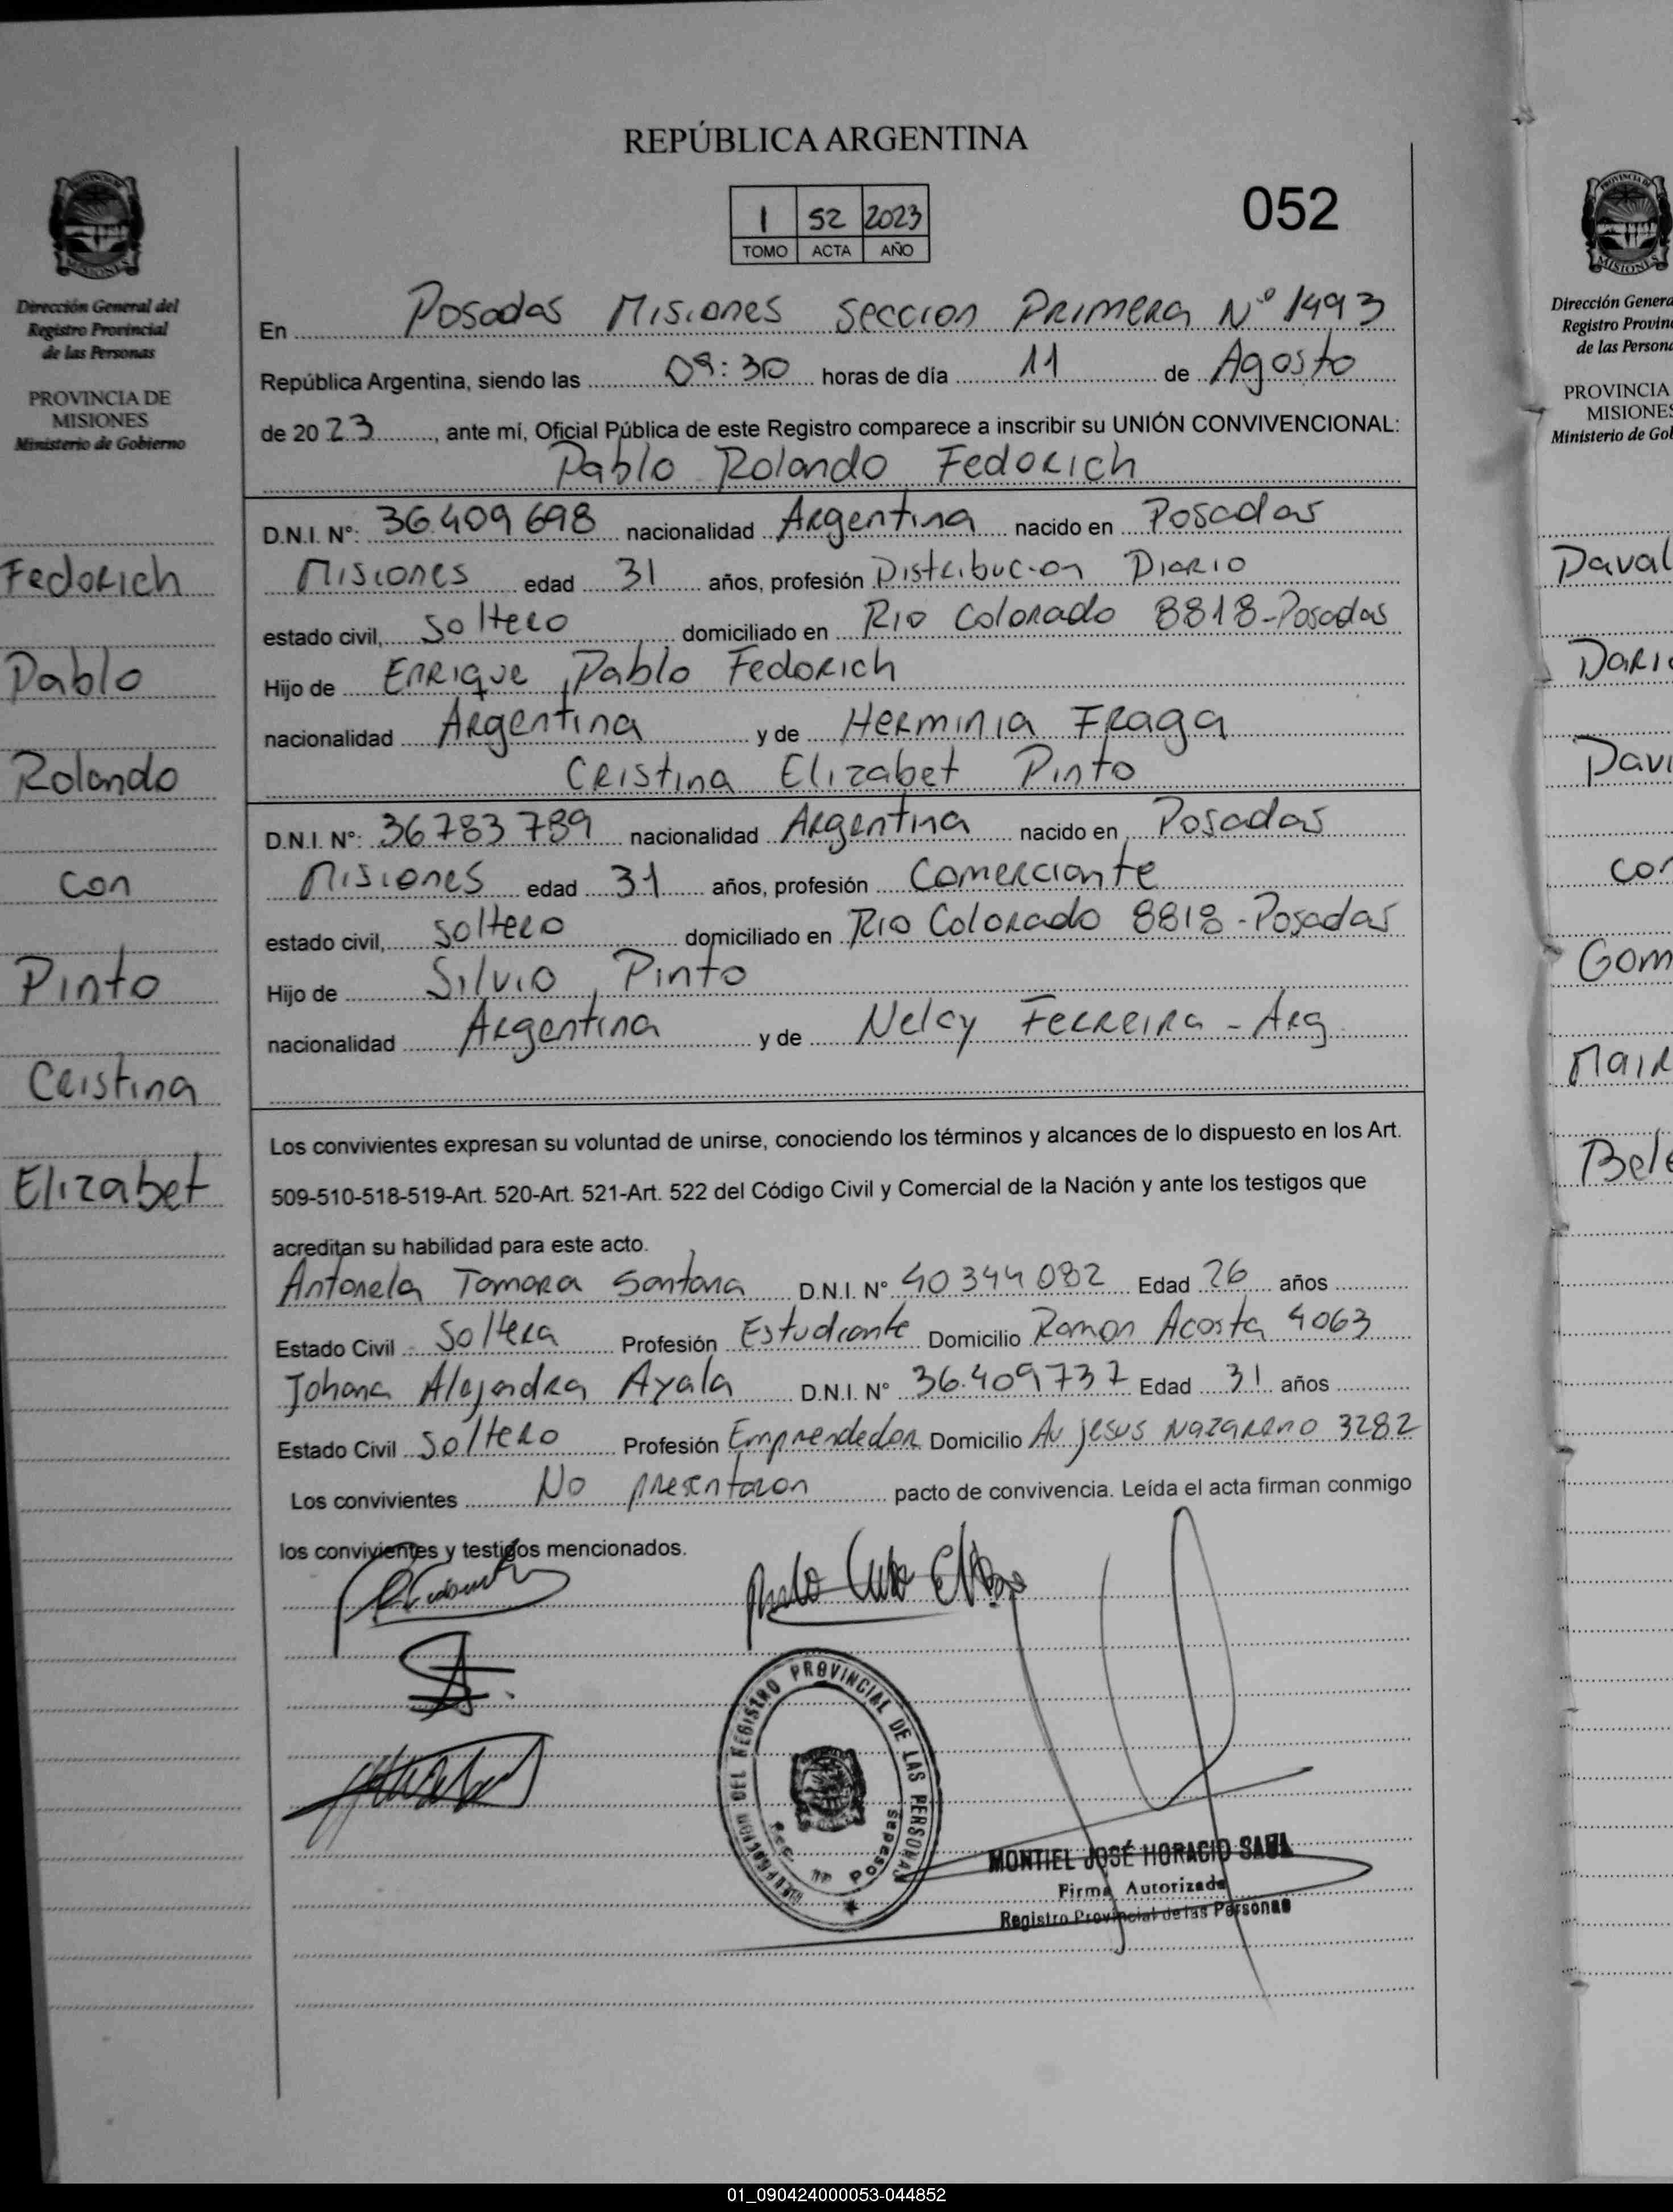 REPÚBLICA ARGENTINA
1 52 2023
TOMO ACTA AÑO
052
Dirección General del
Registro Provincial
de las Personas
PROVINCIA DE
MISIONES
Ministerio de Gobierno
Fedorich
Pablo
Rolando
con
Pinto
Cristina
Elizabet
En Posadas Misiones Seccion Primera Nº 1493
República Argentina, siendo las 09:30 horas de día 11 de Agosto
de 2023, ante mí, Oficial Pública de este Registro comparece a inscribir su UNIÓN CONVIVENCIONAL:
Pablo Rolando Fedorich
D.N.I. Nº: 36.409698 nacionalidad Argentina nacido en Posadas
Misiones edad 31 años, profesión Distribucion Diario
estado civil, soltero domiciliado en Rio Colorado 8818-Posadas
Hijo de Enrique Pablo Fedorich
nacionalidad Argentina y de Herminia Fraga
Cristina Elizabet Pinto
D.N.I. Nº: 36783789 nacionalidad Argentina nacido en Posadas
Misiones edad 31 años, profesión Comerciante
estado civil, soltero domiciliado en Rio Colorado 8818-Posadas
Hijo de Silvio Pinto
nacionalidad Argentina y de Nelcy Ferreira - Arg
Los convivientes expresan su voluntad de unirse, conociendo los términos y alcances de lo dispuesto en los Art.
509-510-518-519-Art. 520-Art. 521-Art. 522 del Código Civil y Comercial de la Nación y ante los testigos que
acreditan su habilidad para este acto.
Antonela Tamara Santana D.N.I. Nº 40344082 Edad 26 años
Estado Civil Soltera Profesión Estudiante Domicilio Ramon Acosta 4063
Johana Alejandra Ayala D.N.I. Nº 36.409737 Edad 31 años
Estado Civil Soltero Profesión Emprendedor Domicilio Av Jesus Nazareno 3282
Los convivientes No presentaron pacto de convivencia. Leída el acta firman conmigo
los convivientes y testigos mencionados.
DEL REGISTRO PROVINCIAL DE LAS PERSONAS
Posadas
MONTIEL JOSÉ HORACIO SAUL
Firma Autorizada
Registro Provincial de las Personas
PROVINCIA
MISIONES
de las Persona
Daval
Dari
Davi
con
Gom
Mair
Bele
01_090424000053-044852